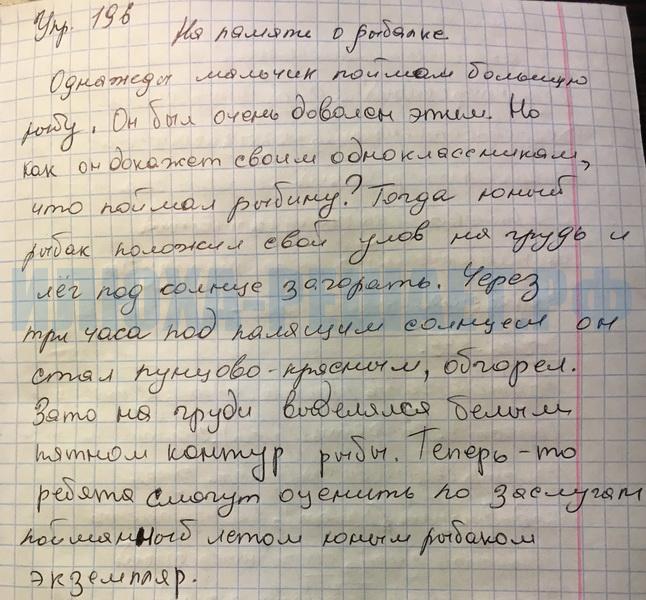 Упр. 196 На память о рыбалке
Однажды мальчик поймал большую
рыбу. Он был очень доволен этим. Но
как он докажет своим одноклассникам,
что поймал рыбину? Тогда юный
рыбак положил свой улов на грудь и
лёг под солнце загорать. Через
три часа под палящим солнцем он
стал пунцово-красным, обгорел.
Зато на груди выделялся белым
пятном контур рыбы. Теперь-то
ребята смогут оценить по заслугам
пойманный летом юным рыбаком
экземпляр.